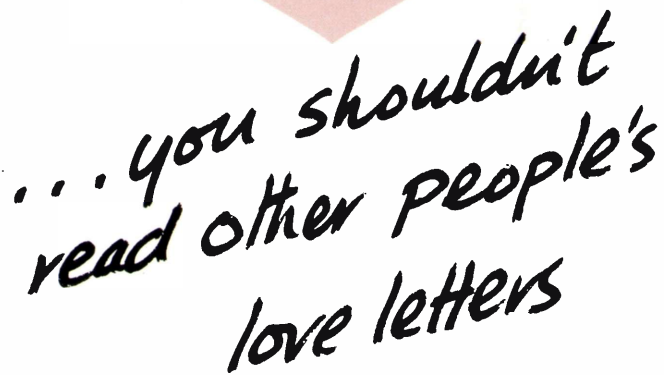 ...you shouldn't
read other people's
love letters